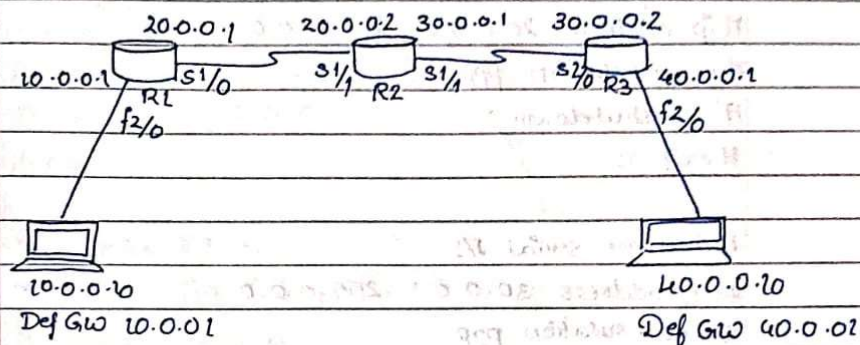 20.0.0.1 20.0.0.2 30.0.0.1 30.0.0.2
10.0.0.1 S1/0 S1/1 S1/1 S2/0 40.0.0.1
R1 R2 R3
f2/0 f2/0
10.0.0.10 40.0.0.10
Def GW 10.0.01 Def GW 40.0.01